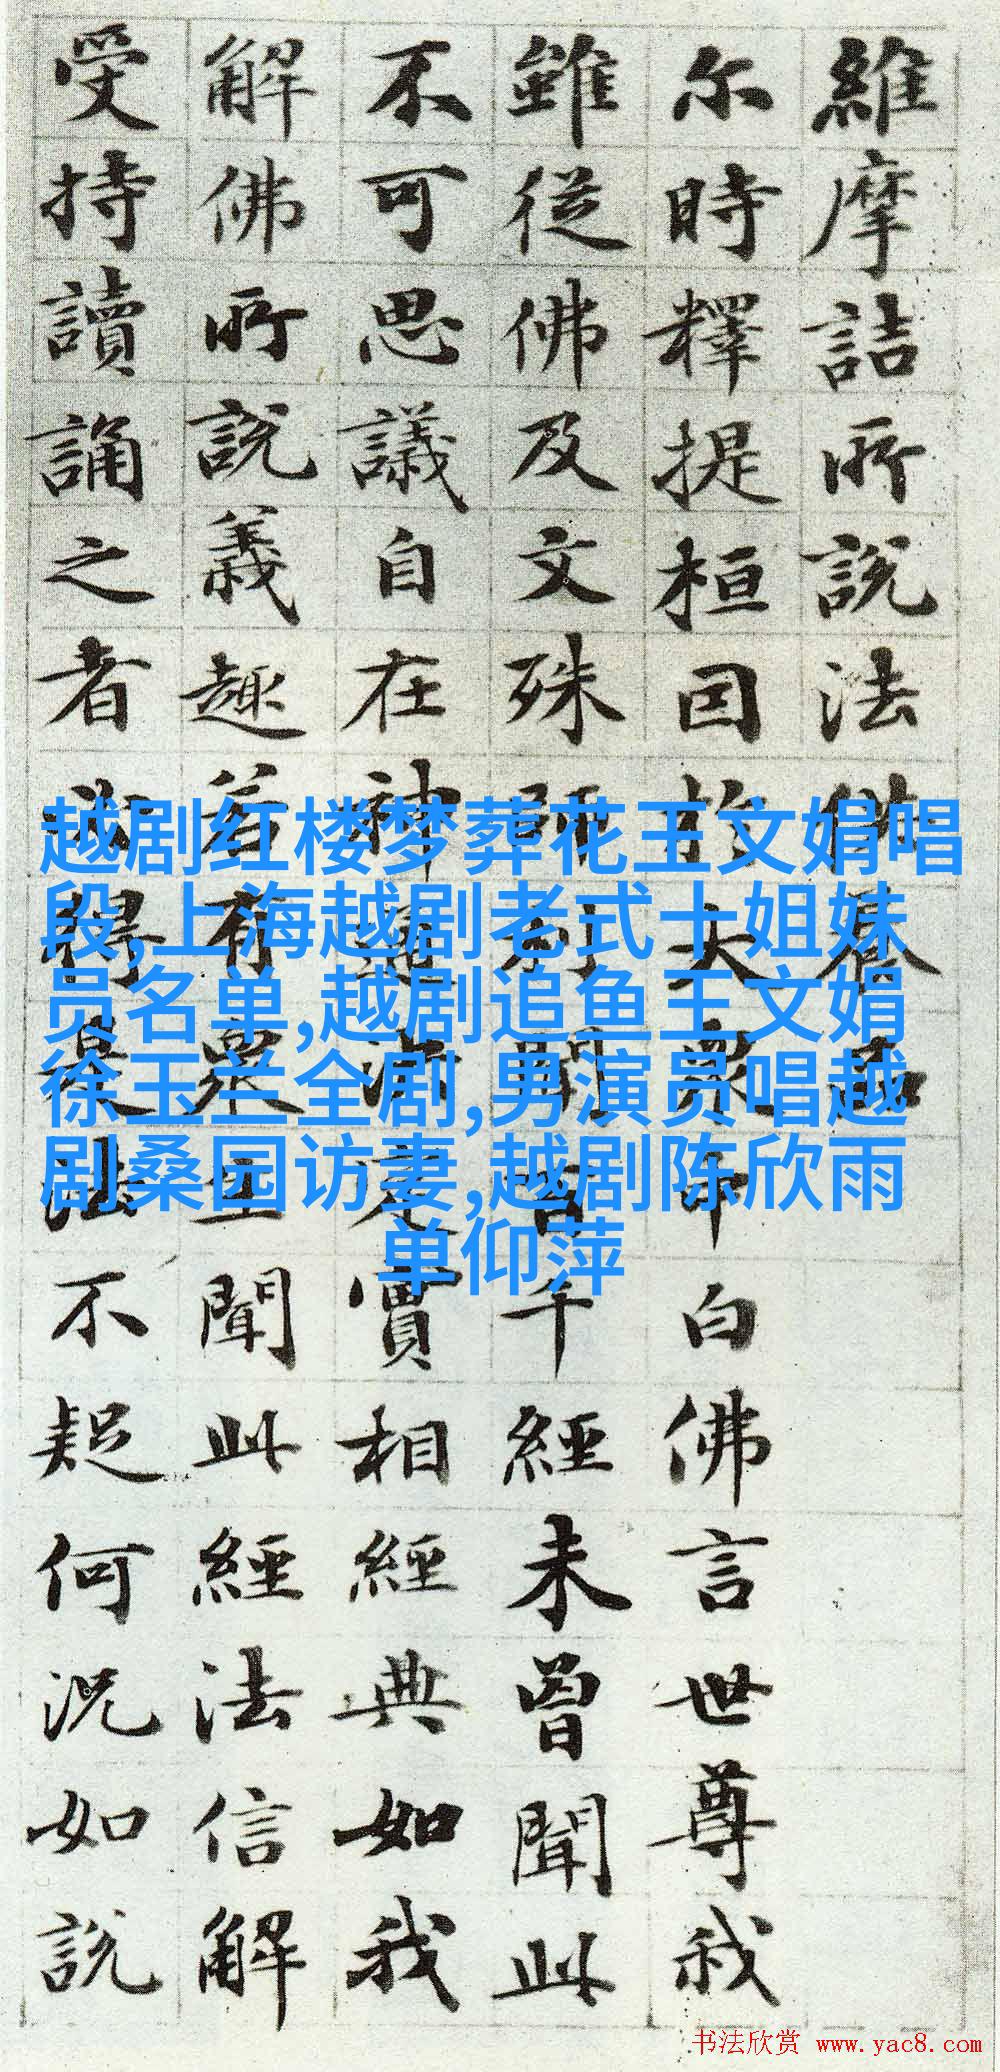 維摩詰所說法供養品
尔時釋提桓因於大眾中白佛言世尊我
雖從佛及文殊師利聞百千經未曾聞此
不可思議自在神通決定實相經典如我
解佛所說義趣若有眾生聞此經法信解
受持讀誦之者必得是法不疑何況如說
越剧红楼梦葬花王文娟唱
段,上海越剧老式十姐妹
员名单,越剧追鱼王文娟
徐玉兰全剧,男演员唱越
剧桑园访妻,越剧陈欣雨
单仰萍
书法欣赏 www.yac8.com